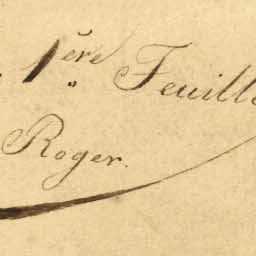 1ère Feuille
Roger.